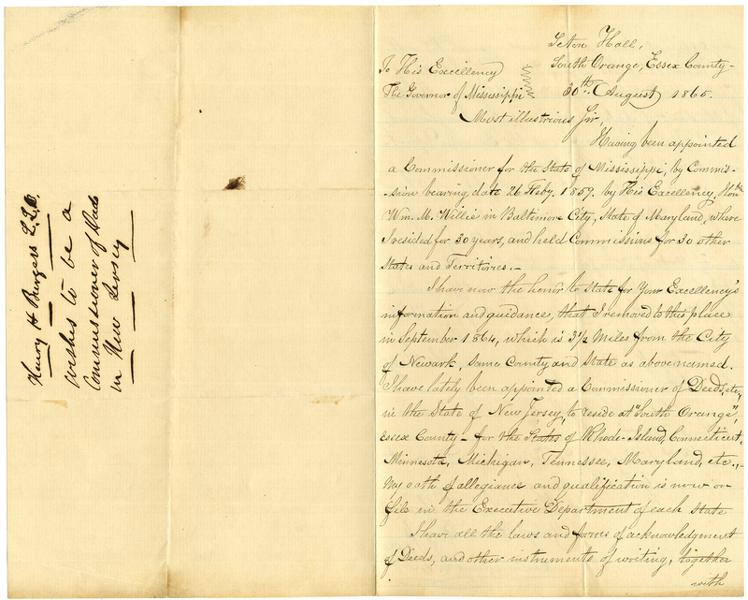 Henry H Burgess L.L.D.
wishes to be a
Commissioner of Deeds
in New Jersey
Seton Hall,
South Orange, Essex County-
To His Excellency
The Governor of Mississippi
30th August 1865.
Most illustrious Sir,
Having been appointed
a Commissioner for the State of Mississippi, by Commis-
-sion bearing date 26 Feby. 1859. by His Excellency, Honble
Wm. M. Willie in Baltimore City, State of Maryland, where
I resided for 30 years, and held Commissions for 30 other
States and Territories.-
I have now the honor to State for Your Excellency's
information and guidance, that I removed to this place
in September 1864, which is 3½ Miles from the City
of Newark, same County and State as above named.
I have lately been appointed a Commissioner of Deeds, etc,
in the State of New Jersey, to reside at "South Orange",
Essex County- for the States of Rhode-Island, Connecticut,
Minnesota, Michigan, Tennessee, Maryland, etc.,-
My oath of allegiance and qualification is now on
file in the Executive Department of each State
I have all the laws and forms of acknowledgment
of Deeds, and other instruments of writing, together
with